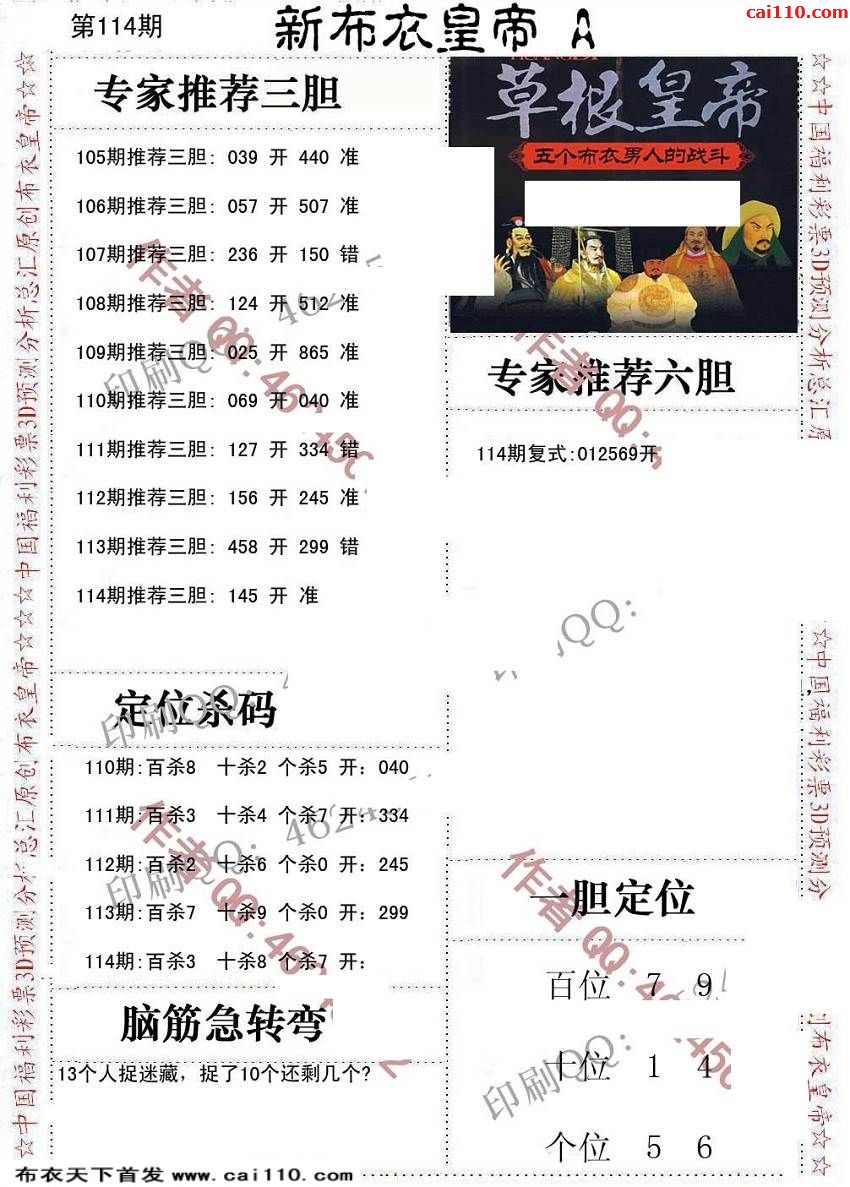 cai110.com
第114期
新布衣皇帝 A
专家推荐三胆
105期推荐三胆: 039 开 440 准
106期推荐三胆: 057 开 507 准
107期推荐三胆: 236 开 150 错
108期推荐三胆: 124 开 512 准
109期推荐三胆: 025 开 865 准
110期推荐三胆: 069 开 040 准
111期推荐三胆: 127 开 334 错
112期推荐三胆: 156 开 245 准
113期推荐三胆: 458 开 299 错
114期推荐三胆: 145 开 准
草根皇帝
五个布衣男人的战斗
专家推荐六胆
114期复式:012569开
定位杀码
110期:百杀8 十杀2 个杀5 开: 040
111期:百杀3 十杀4 个杀7 开: 334
112期:百杀2 十杀6 个杀0 开: 245
113期:百杀7 十杀9 个杀0 开: 299
114期:百杀3 十杀8 个杀7 开:
一胆定位
百位 7 9
十位 1 4
个位 5 6
脑筋急转弯
13个人捉迷藏，捉了10个还剩几个?
☆中国福利彩票3D预测分析总汇原创布衣皇帝☆☆
☆☆中国福利彩票3D预测分析总汇原
☆中国福利彩票3D预测分
布衣皇帝☆☆
作者QQ:
印刷QQ:
布衣天下首发 www.cai110.com